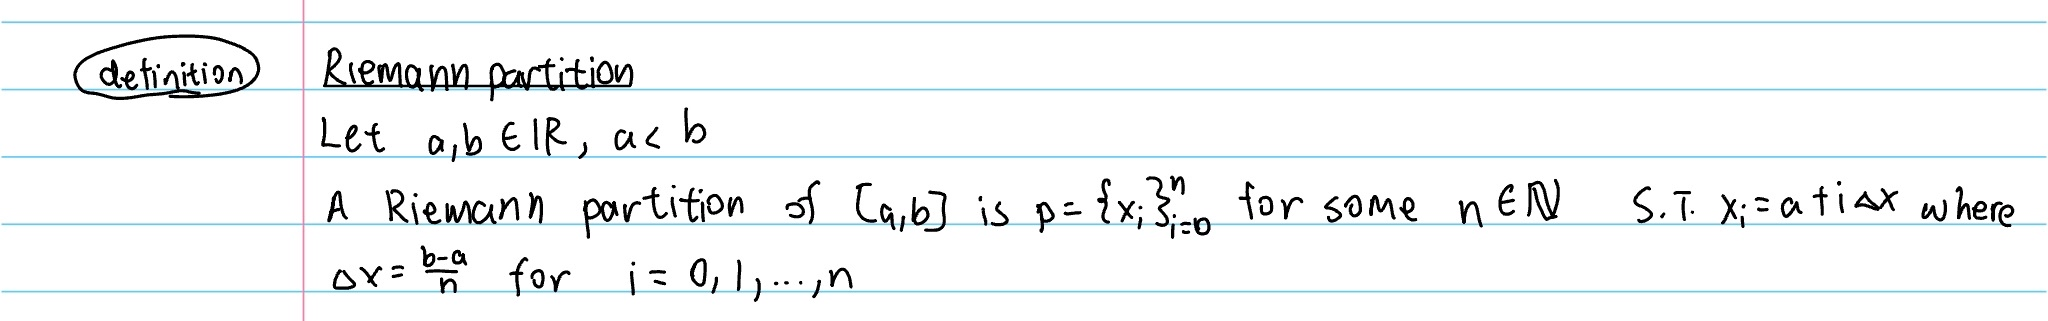 definition
Riemann partition
Let a,b ∈ ℝ, a < b
A Riemann partition of [a,b] is p = {xᵢ}ⁿᵢ₌₀ for some n ∈ ℕ S.T. xᵢ = a + i△x where
△x = (b-a)/n for i = 0, 1, ..., n